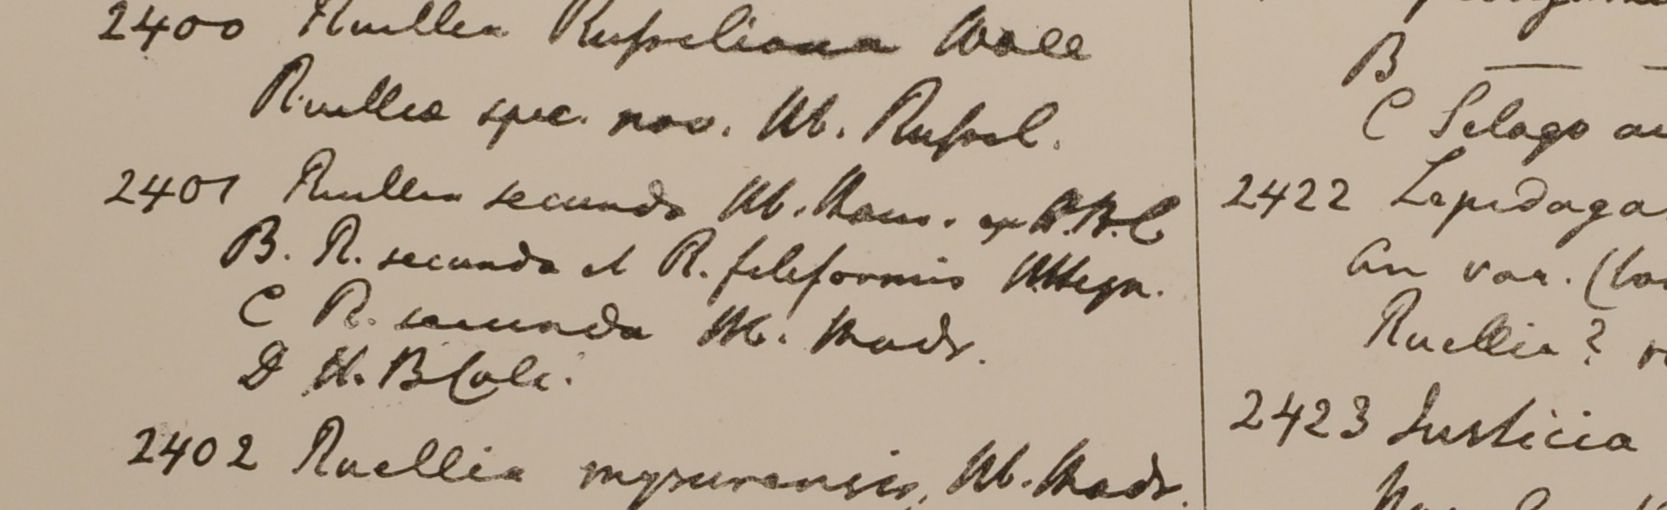 2400 Ruellia Russeliana Wall
Ruellia spec. nov. Hb. Russel.
2401 Ruellia secunda Hb. Ham. ex H.B.C
B. R. secunda et R. filiformis
C R. secunda Hb. Madr.
D H. B Calc.
2402 Ruellia mysurensis, Hb. Madr.
B
C Selago
2422 Lepidaga
An var.
Ruellia?
2423 Justicia